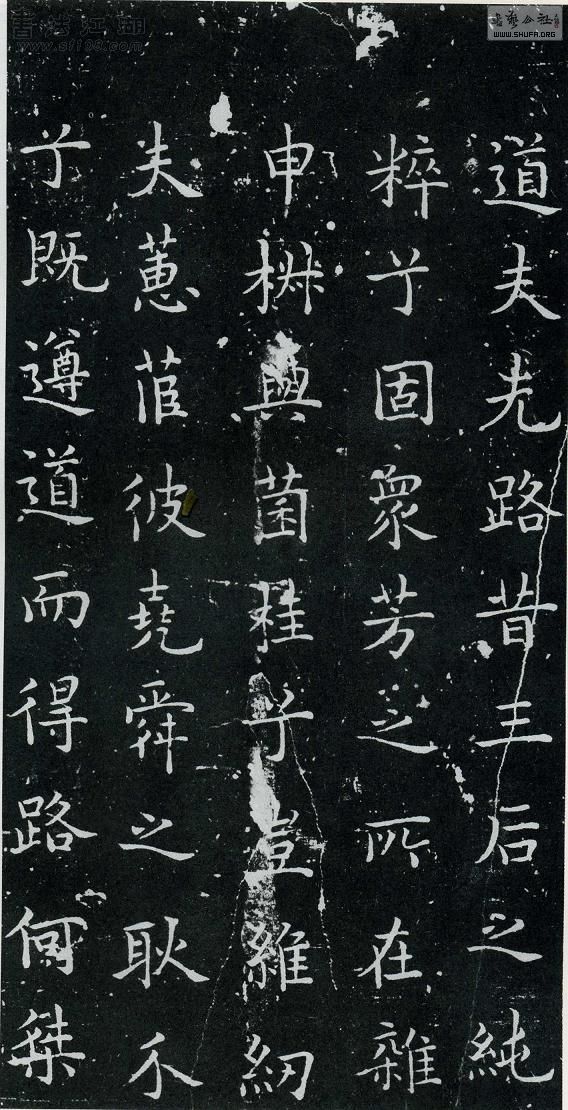 書法江湖
www.sf108.com
書藝公社
WWW.SHUFA.ORG
道夫先路昔三后之純
粹兮固衆芳之所在雜
申椒與菌桂兮豈維紉
夫蕙茝彼堯舜之耿介
兮既遵道而得路何桀